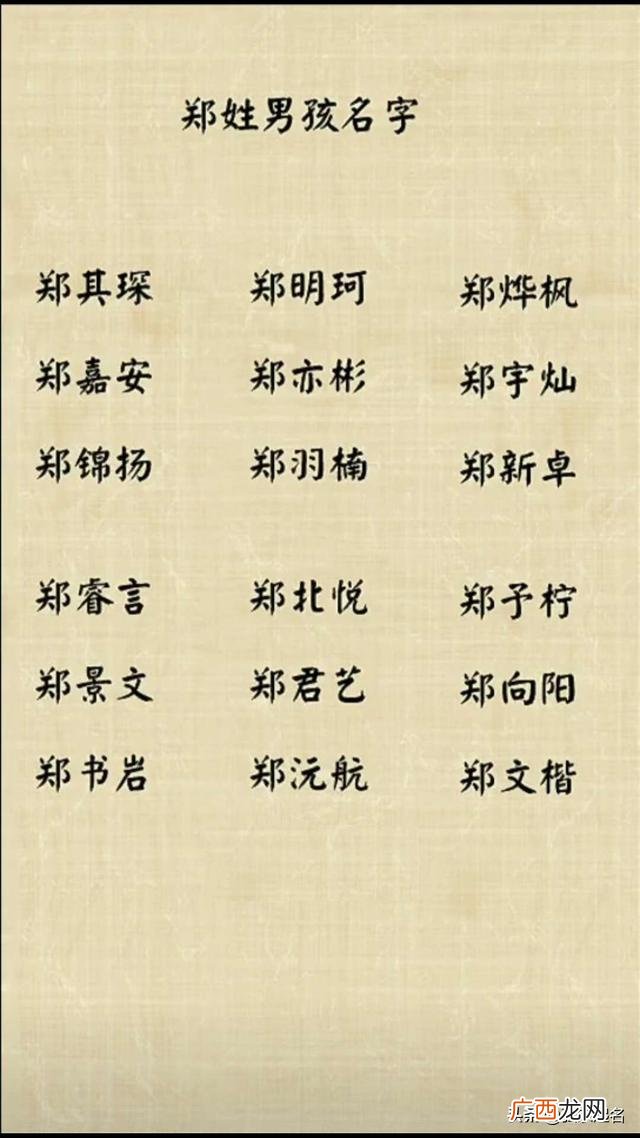 郑姓男孩名字
郑其琛 郑明珂 郑烨枫
郑嘉安 郑亦彬 郑宇灿
郑锦扬 郑羽楠 郑新卓
郑睿言 郑北悦 郑予柠
郑景文 郑君艺 郑向阳
郑书岩 郑沅航 郑文楷
广西龙网